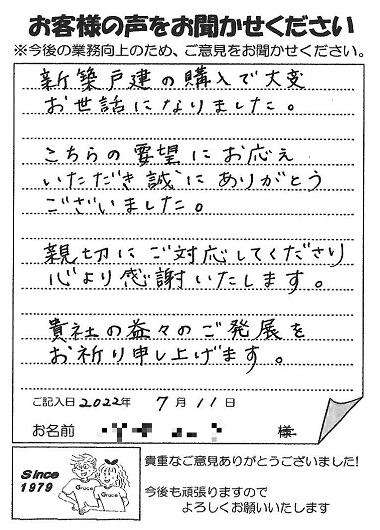 お客様の声をお聞かせください
※今後の業務向上のため、ご意見をお聞かせください。
新築戸建の購入で大変
お世話になりました。
こちらの要望にお応え
いただき誠にありがとう
ございました。
親切にご対応してくださり
心より感謝いたします。
貴社の益々のご発展を
お祈り申し上げます。
ご記入日 2022年 7月 11日
お名前 様
貴重なご意見ありがとうございました!
Since
1979
Grace
Grace
今後も頑張りますので
よろしくお願いいたします